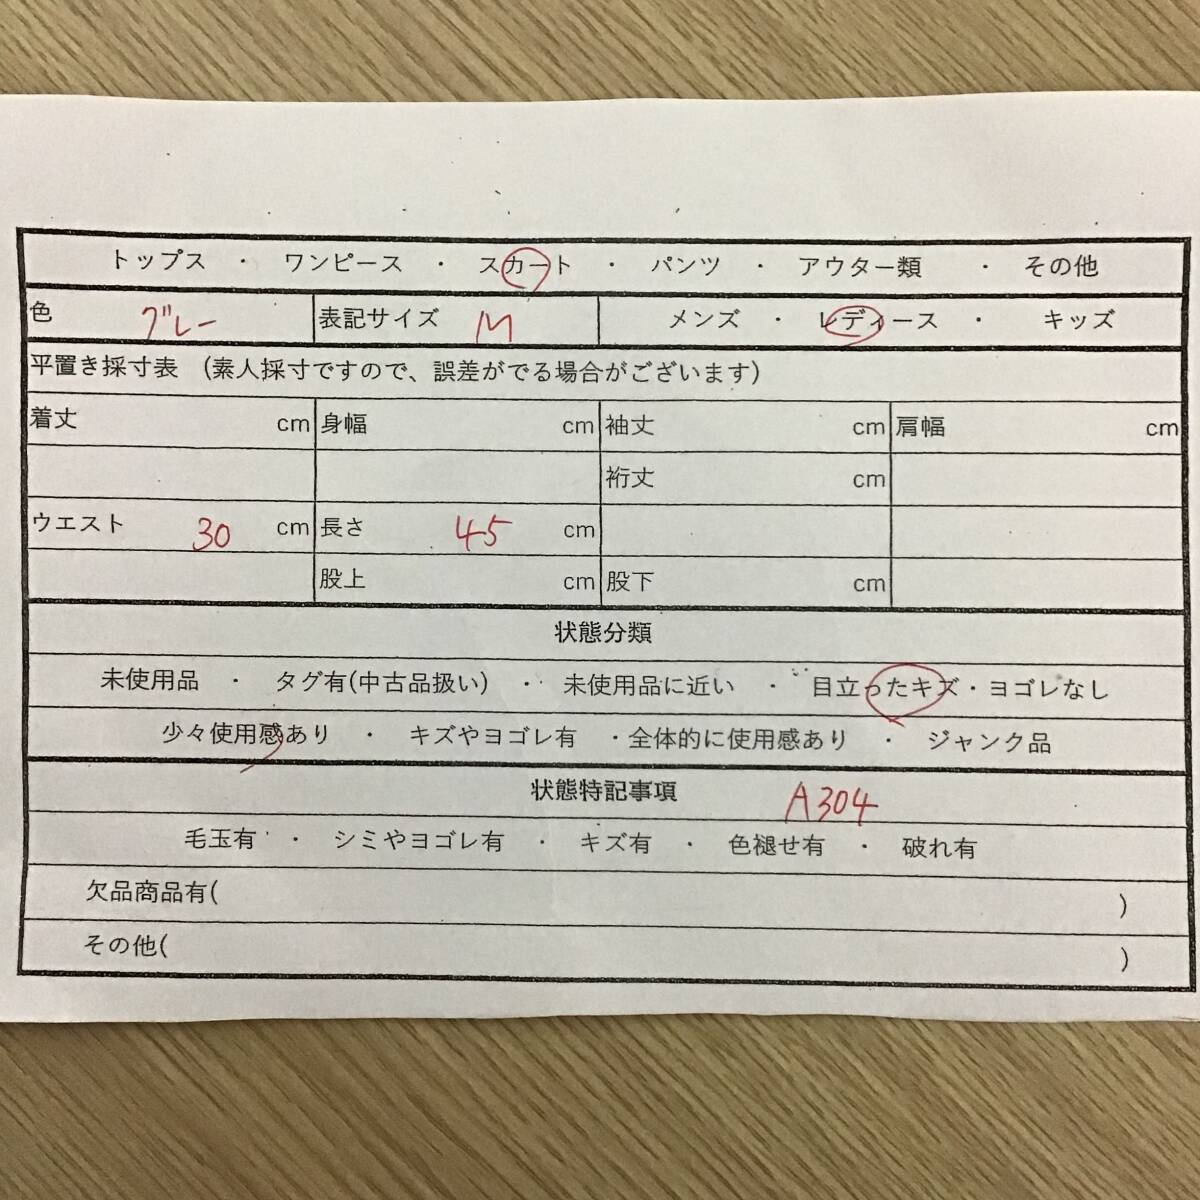 トップス ・ ワンピース ・ スカート ・ パンツ ・ アウター類 ・ その他
色 グレー 表記サイズ M メンズ ・ レディース ・ キッズ
平置き採寸表 (素人採寸ですので、誤差がでる場合がございます)
着丈 cm 身幅 cm 袖丈 cm 肩幅 cm
裄丈 cm
ウエスト 30 cm 長さ 45 cm
股上 cm 股下 cm
状態分類
未使用品 ・ タグ有(中古品扱い) ・ 未使用品に近い ・ 目立ったキズ・ヨゴレなし
少々使用感あり ・ キズやヨゴレ有 ・全体的に使用感あり ・ ジャンク品
状態特記事項 A304
毛玉有 ・ シミやヨゴレ有 ・ キズ有 ・ 色褪せ有 ・ 破れ有
欠品商品有( )
その他( )